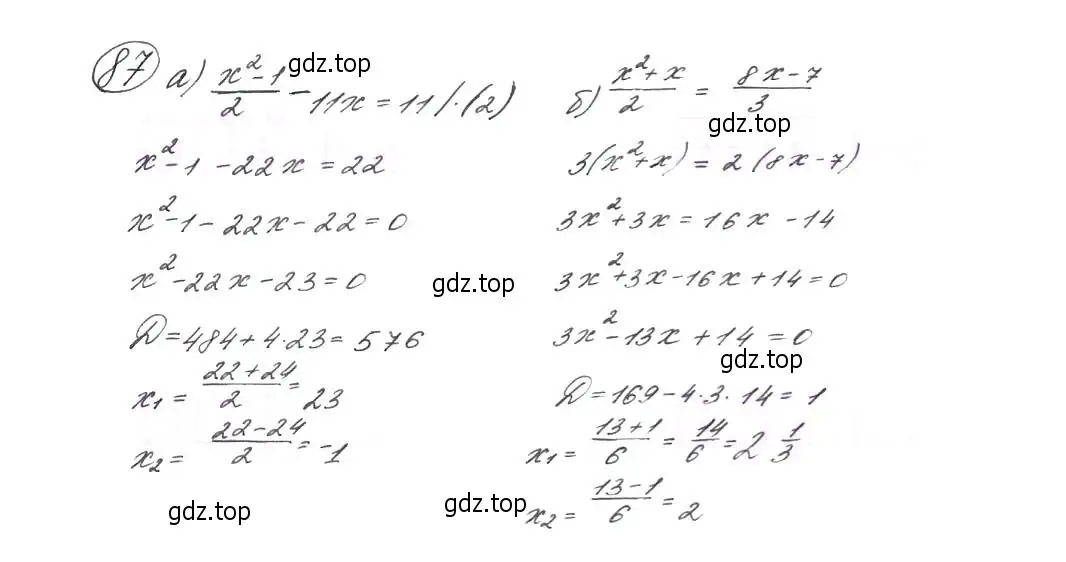 87 а) (x² - 1)/2 - 11x = 11 /·(2)
x² - 1 - 22x = 22
x² - 1 - 22x - 22 = 0
x² - 22x - 23 = 0
D = 484 + 4·23 = 576
x₁ = (22 + 24)/2 = 23
x₂ = (22 - 24)/2 = -1
б) (x² + x)/2 = (8x - 7)/3
3(x² + x) = 2(8x - 7)
3x² + 3x = 16x - 14
3x² + 3x - 16x + 14 = 0
3x² - 13x + 14 = 0
D = 169 - 4·3·14 = 1
x₁ = (13 + 1)/6 = 14/6 = 2 1/3
x₂ = (13 - 1)/6 = 2
gdz.top
gdz.top
gdz.top
gdz.top
gdz.top
gdz.top